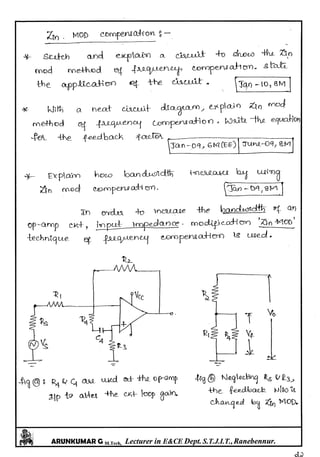 Zin. MOD compensation :-
* Sketch and explain a circuit to show the Zin
mod method of frequency compensation. state
the application of the circuit. Jan-10, 8M
* With a neat circuit diagram, explain Zin mod
method of frequency compensation. Write the equation
for the feedback factor.
Jan-09, 6M(EE) June-09, 8M
* Explain how bandwidth increases by using
Zin mod compensation. Jan-09, 8M
In order to increase the bandwidth of an
op-amp ckt, Input impedance. modification 'Zin MOD'
technique of frequency compensation is used.
R2
R1
+VCC
RS
R4
C4
R3
VS
R2
R1
R4
VF
V0
fig (a) : R4 & C4 are used at the opamp
i/p to alter the ckt loop gain.
fig (b) Neglecting RS & R3,
the feedback N/W is
changed by Zin MOD.
ARUNKUMAR G M.Tech, Lecturer in E&CE Dept. S.T.J.I.T., Ranebennur.